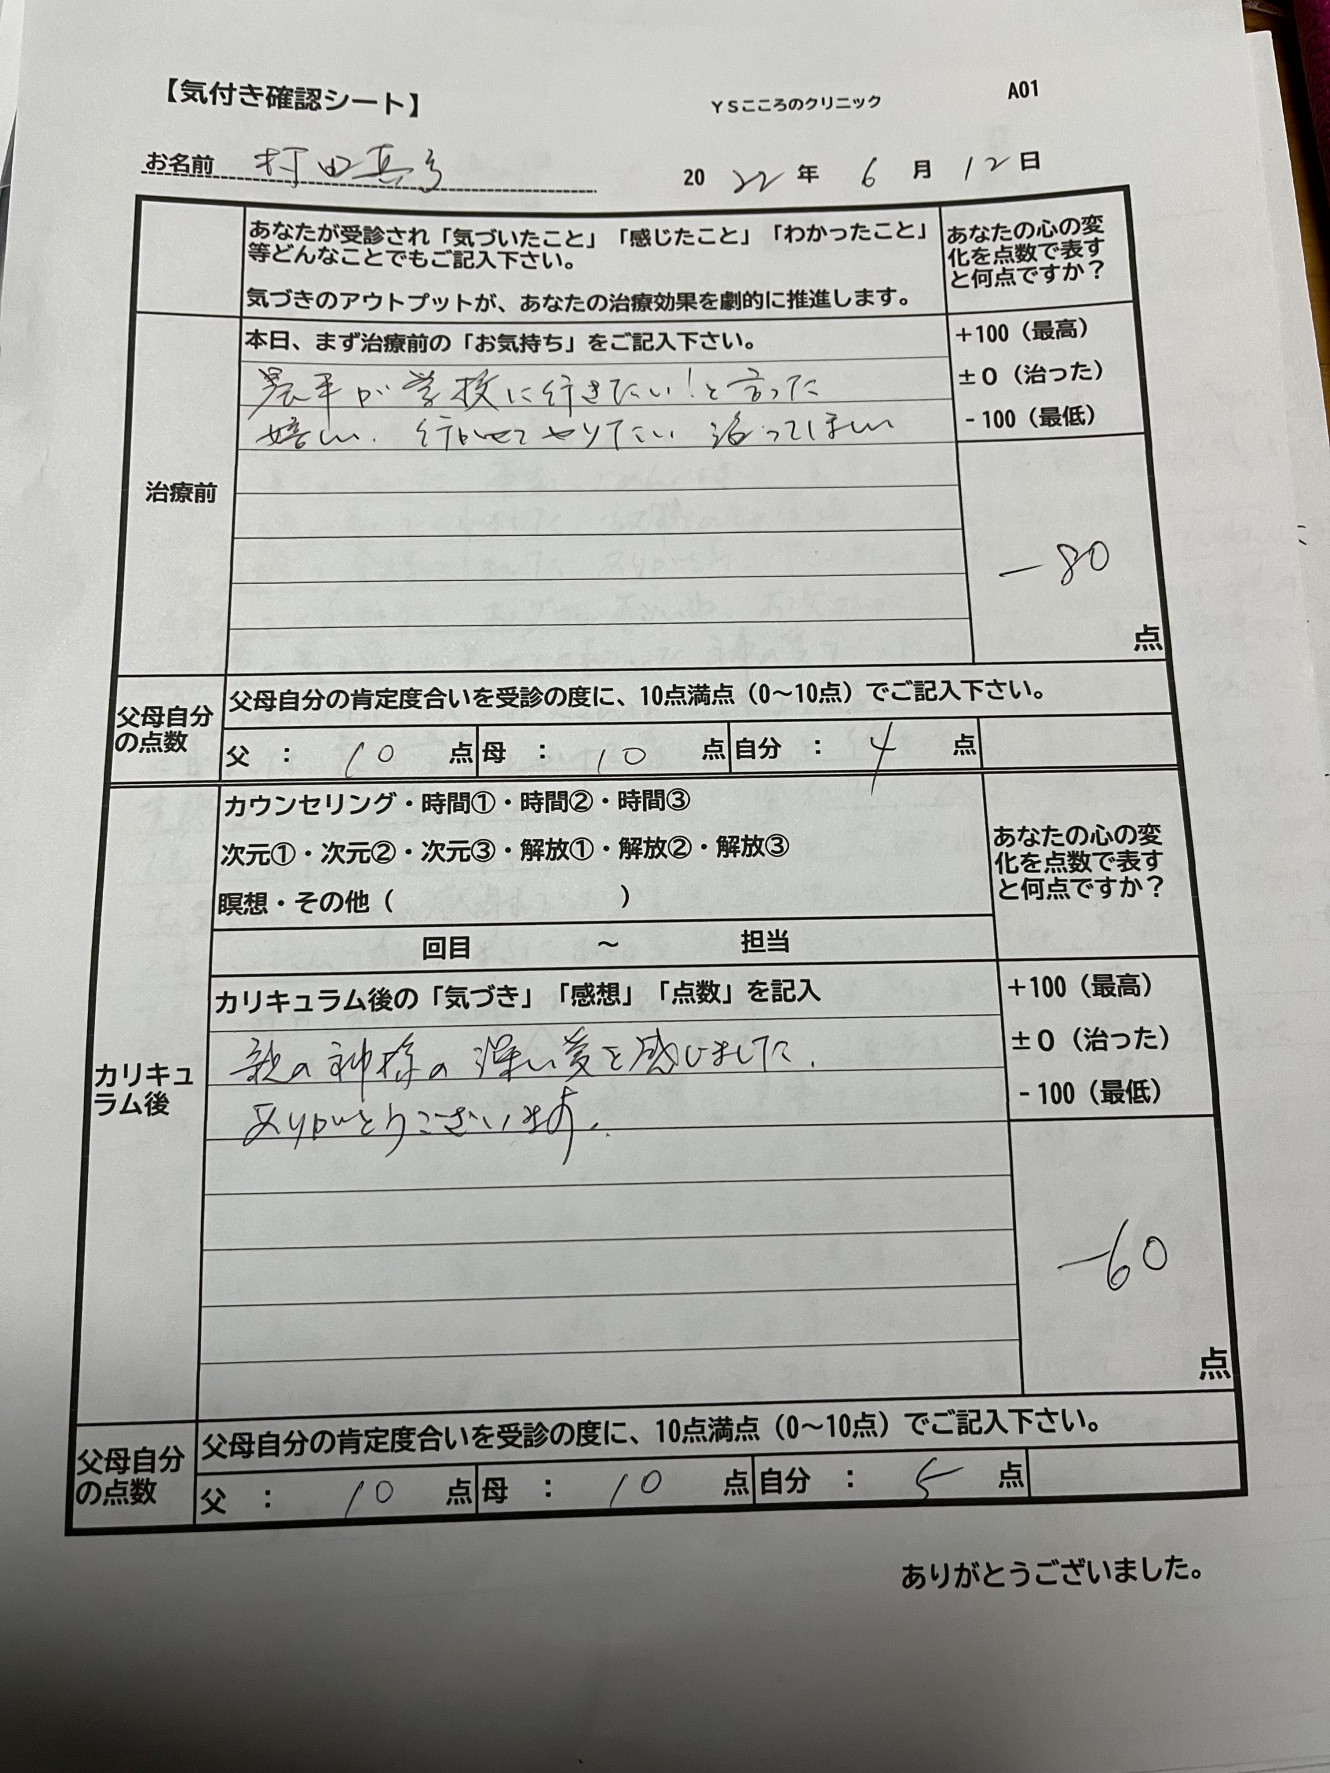 【気付き確認シート】
YSこころのクリニック
A01
お名前 村田真
2022年6月12日
あなたが受診され「気づいたこと」「感じたこと」「わかったこと」
等どんなことでもご記入下さい。
気づきのアウトプットが、あなたの治療効果を劇的に推進します。
あなたの心の変
化を点数で表す
と何点ですか？
治療前
本日、まず治療前の「お気持ち」をご記入下さい。
平が学校に行きたい！と言った
嬉しい。行かせてやりたい 治ってほしい
+100（最高）
±0（治った）
-100（最低）
-80
点
父母自分
の点数
父母自分の肯定度合いを受診の度に、10点満点（0～10点）でご記入下さい。
父：10点 母：10点 自分：4点
カリキュ
ラム後
カウンセリング・時間①・時間②・時間③
次元①・次元②・次元③・解放①・解放②・解放③
瞑想・その他（ ）
回目 ～ 担当
あなたの心の変
化を点数で表す
と何点ですか？
カリキュラム後の「気づき」「感想」「点数」を記入
親の神様の深い愛を感じました。
ありがとうございます。
+100（最高）
±0（治った）
-100（最低）
-60
点
父母自分
の点数
父母自分の肯定度合いを受診の度に、10点満点（0～10点）でご記入下さい。
父：10点 母：10点 自分：5点
ありがとうございました。